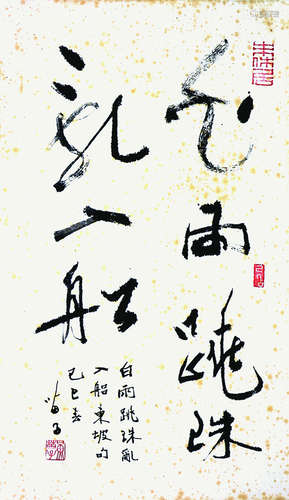 白雨跳珠
亂入船
白雨跳珠亂
入船東坡句
己巳春